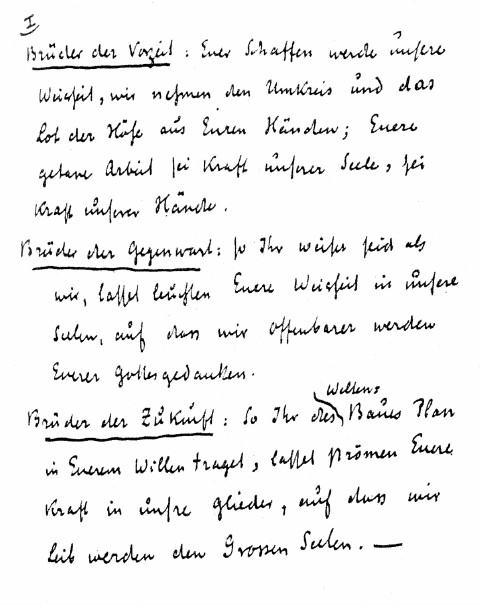 I
Brüder der Vorzeit: Euer Schaffen werde unsere
Weisheit, wir nehmen den Umkreis und das
Lot der Höhe aus Euren Händen; Euere
getane Arbeit sei Kraft unserer Seele, sei
Kraft unserer Hände.
Brüder der Gegenwart: so Ihr weiser seid als
wir, lasset leuchten Euere Weisheit in unsere
Seelen, auf dass wir Offenbarer werden
Euerer Gottesgedanken.
Welten-
Brüder der Zukunft: So Ihr des Baues Plan
in Euerem Willen traget, lasset strömen Euere
Kraft in unsre Glieder, auf dass wir
Leib werden den Grossen Seelen. —